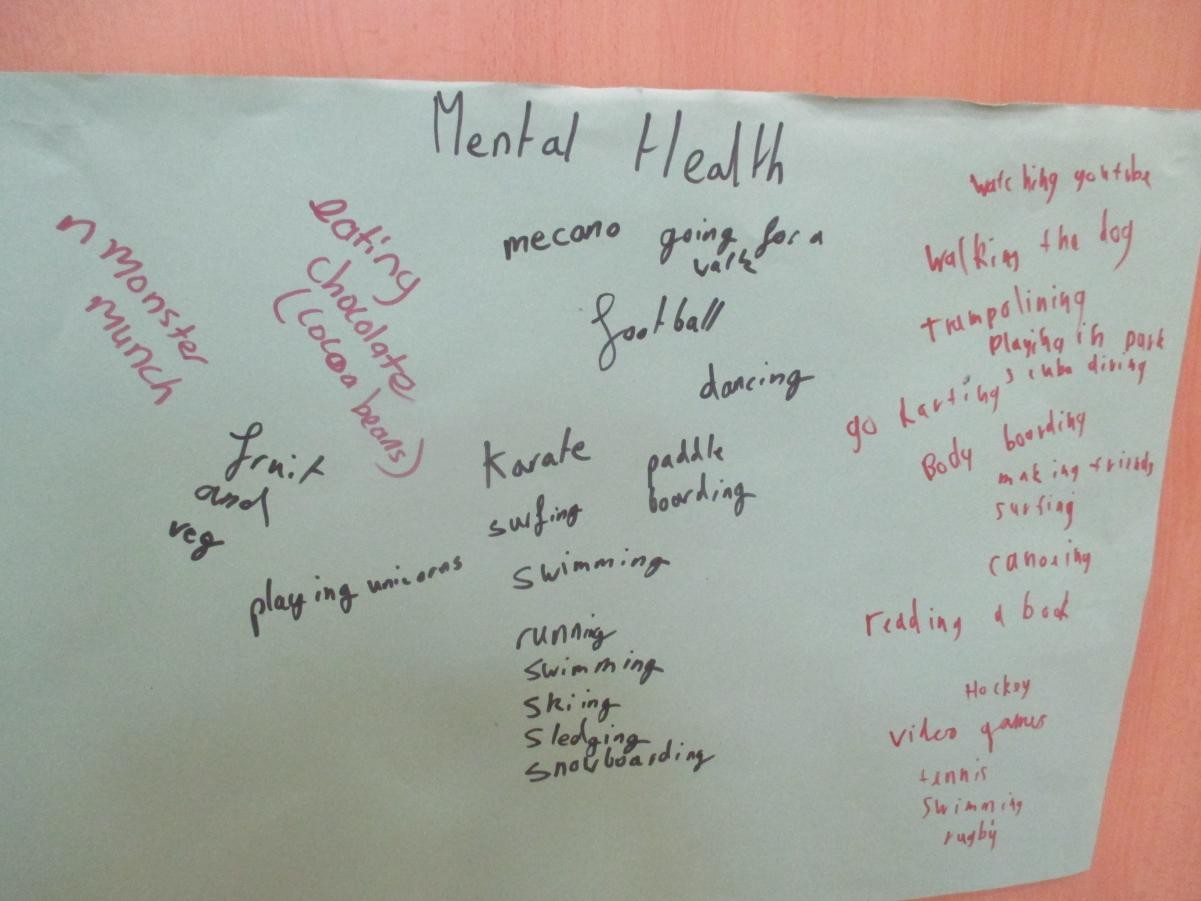 Mental Health
n monster
munch
eating
chocolate
(cocoa beans)
fruit
and
veg
playing unicorns
mecano
going for a
walk
football
dancing
karate
paddle
boarding
surfing
swimming
running
swimming
skiing
sledging
snowboarding
watching youtube
walking the dog
trampolining
playing in park
go karting
scuba diving
Body boarding
making friends
surfing
canoeing
reading a book
Hockey
video games
tennis
swimming
rugby